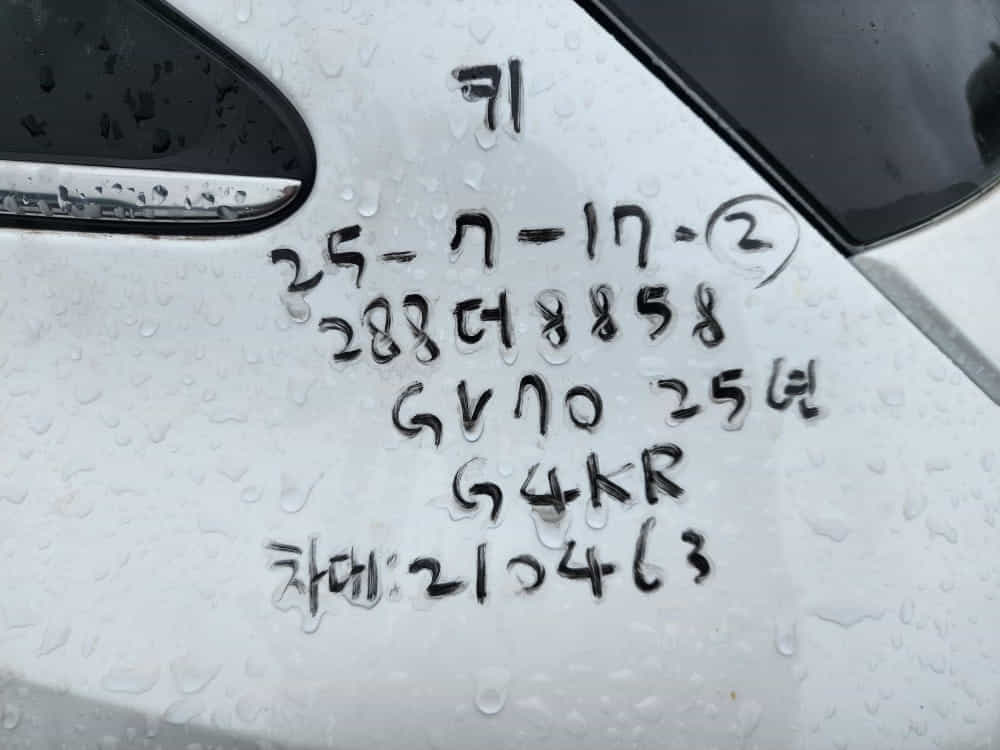 키
25-7-17-②
288더8858
GV70 25년
G4KR
차대:210463